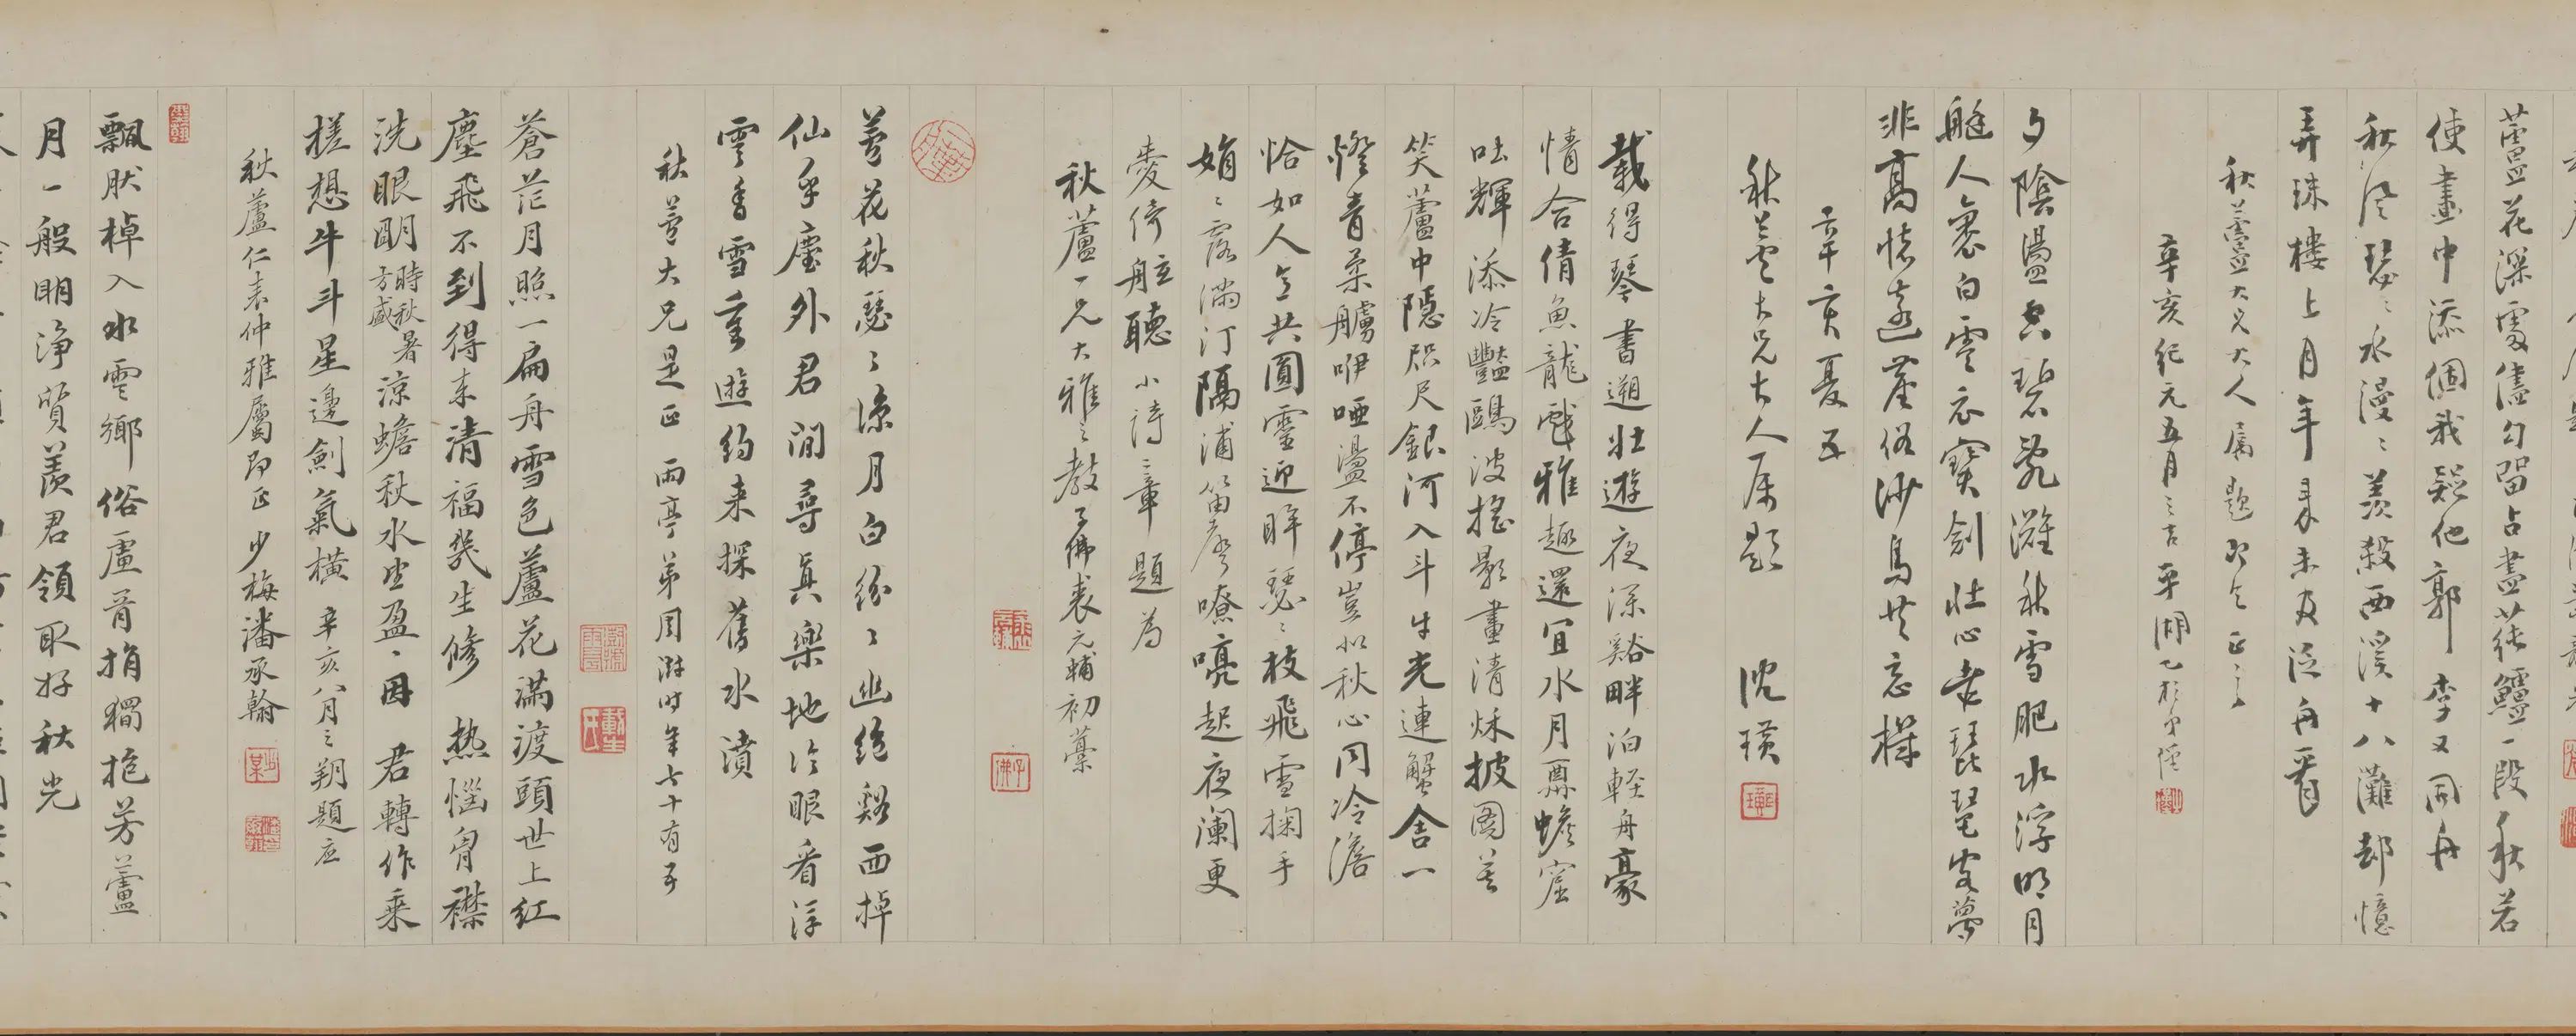 蘆花深處儘勾留占盡茫鱸一段秋若
使畫中添個我疑他郭李又同舟
秋風瑟〻水漫〻羨殺西溪十八灘却憶
弄珠樓上月年來未及泛舟看
秋蘆大兄大人属題即乞正之
辛亥紀元五月之吉平湖
夕陰盪空碧亂灘秋雪肥水浮明月
艇人裹白雲衣寶劍壯心老琵琶客夢
非高情遠塵俗沙鳥共忘機
辛亥夏五
秋蘆大兄大人属題 沈璜
載得琴書遡壯遊夜深谿畔泊輕舟豪
情合倩魚龍戲雅趣還宜水月兼蟾窟
吐輝添冷豔鷗波搖影畫清秋披圖羨
笑蘆中隱咫尺銀河入斗牛光連蟹舍一
燈青柔艣咿啞盪不停豈似秋心同冷澹
恰如人意共圓靈迎眸瑟〻枝飛雪掬手
娟〻露滿汀隔浦笛聲嘹喨起夜闌更
憂倚舷聽小詩二章題為
秋蘆一兄大雅之教 子佛袁元輔初藁
蘆花秋瑟〻凉月白紛〻幽絶谿西掉
仙乎塵外君閒尋真樂地冷眼看浮
雲香雪重遊約来探舊水濆
秋蘆大兄是正 雨亭弟周 時年七十有五
蒼茫月照一扁舟雪色蘆花滿渡頭世上紅
塵飛不到得来清福幾生修 热惱胷襟
洗眼明時秋暑方盛涼蟾秋水坐盈〻因 君轉作乘
槎想牛斗星邊劍氣橫 辛亥八月之朔題应
秋蘆仁表仲雅屬即正 少梅潘承翰
飄然棹入水雲鄉俗慮胥捐獨抱芳蘆
月一般明淨質羨君領取好秋光